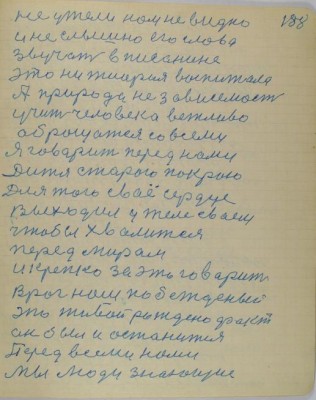 не ужели нам не видно 188
и не слышно его слова
звучать в писание
это ни тиория воспитала
А природа не зависемость
учит человека вежливо
обращатся со всеми
Я говарит перед нами
Дитя старого покрою
Для того своё сердце
выходил у теле своем
чтобы хвалится
перед мирам
и крепко за это говарить
Враг наш побежденый
это живой рождено факт
он был и останится
Перед всеми нами
Мы люди знающие